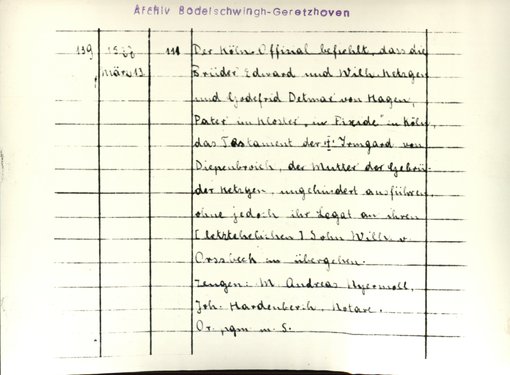 Archiv Bodelschwingh-Geretzhoven
119 1587 März 13 111 Der Köln. Offizial befiehlt, dass die
Brüder Edward und Wilh. Ketzgen
und Godefrid Detmar von Hagen,
Pater im Kloster "in Pixide" in Köln,
das Testament der † Irmgard von
Diepenbroich, der Mutter der Gebrü-
der Ketzgen, ungehindert ausführen,
ohne jedoch ihr Legat an ihren
[letztehelichen] Sohn Wilh. v.
Orssbeck zu übergehen.
Zeugen: M. Andreas
Joh. Hardenberch, Notare.
Or. m. S.